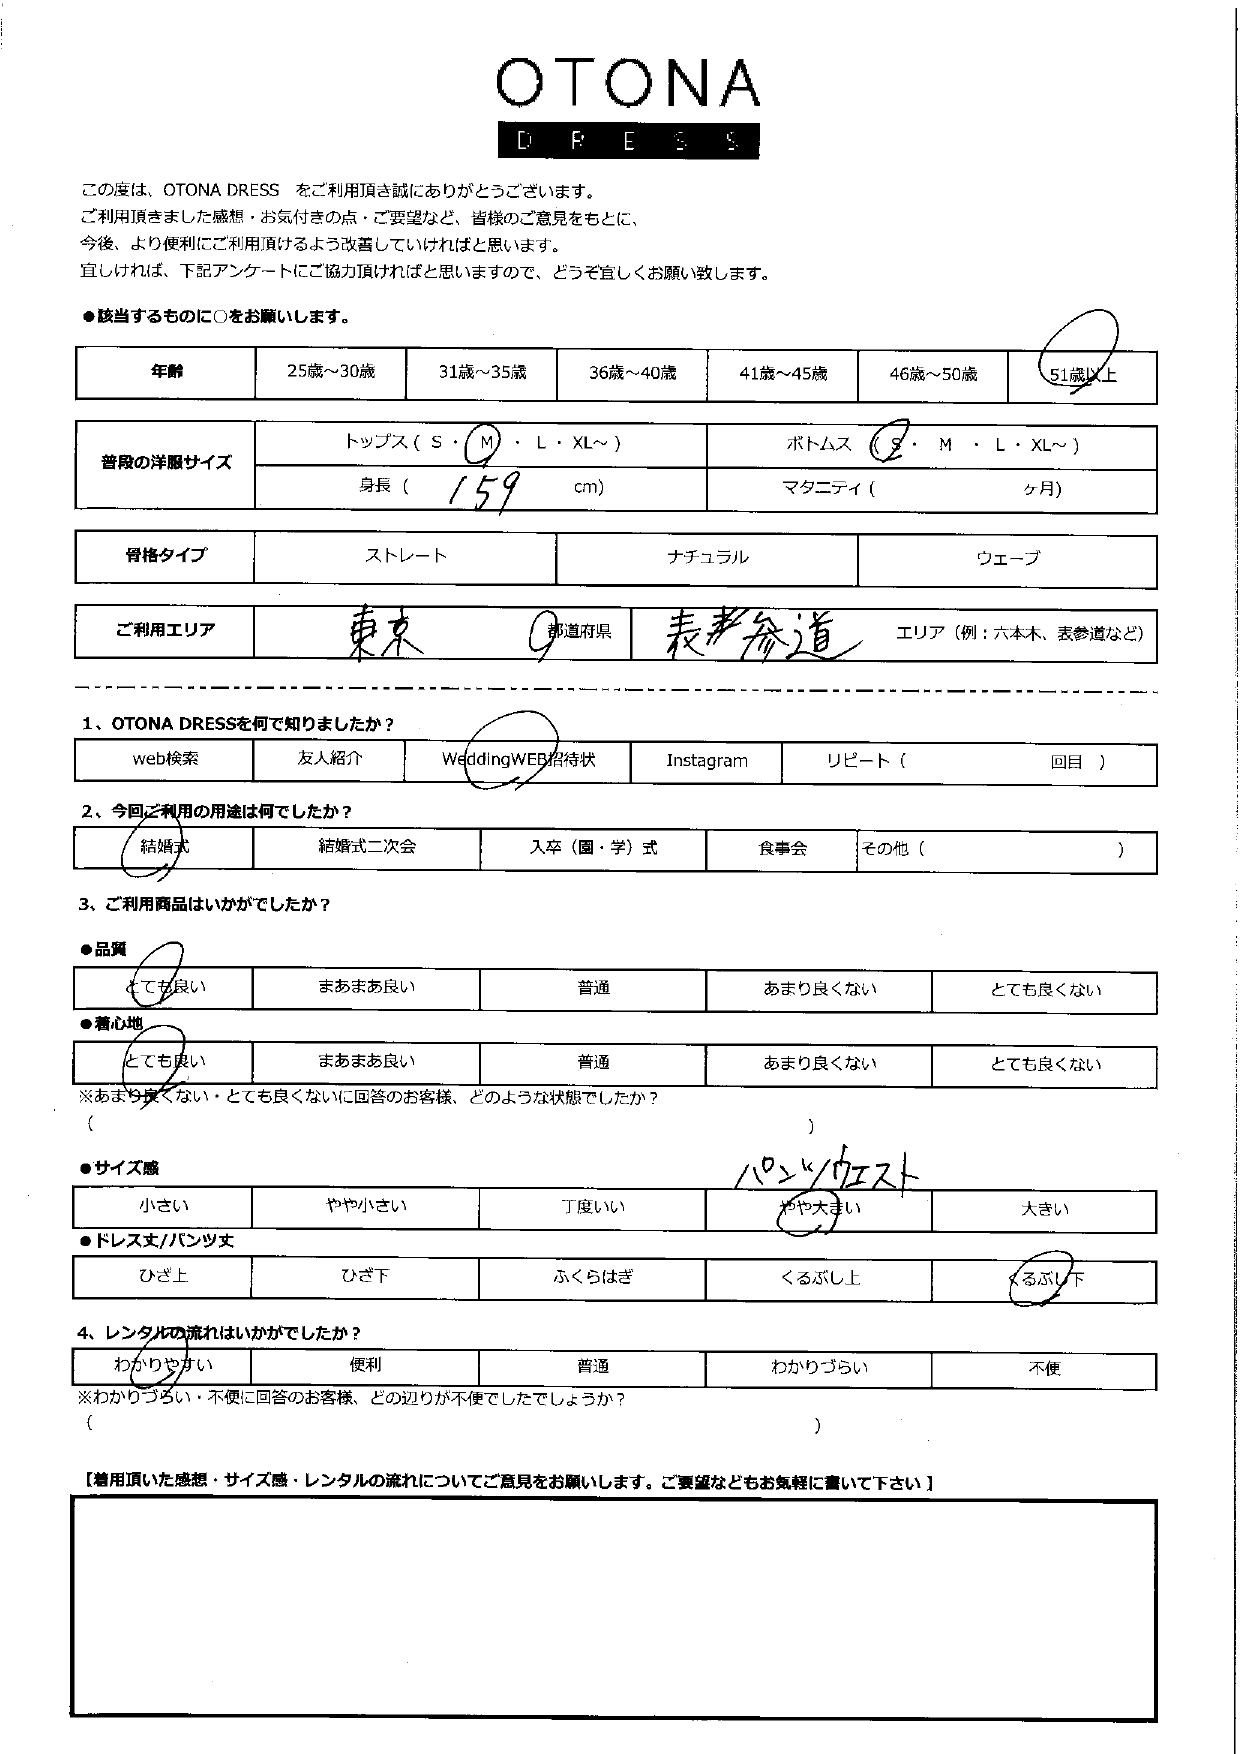 OTONA
DRESS
この度は、OTONA DRESS をご利用頂き誠にありがとうございます。
ご利用頂きました感想・お気付きの点・ご要望など、皆様のご意見をもとに、
今後、より便利にご利用頂けるよう改善していければと思います。
宜しければ、下記アンケートにご協力頂ければと思いますので、どうぞ宜しくお願い致します。
●該当するものに○をお願いします。
年齢 25歳～30歳 31歳～35歳 36歳～40歳 41歳～45歳 46歳～50歳 51歳以上
普段の洋服サイズ トップス ( S ・ M ・ L ・ XL～ ) ボトムス ( S ・ M ・ L ・ XL～ )
身長 ( 159 cm) マタニティ ( ヶ月)
骨格タイプ ストレート ナチュラル ウェーブ
ご利用エリア 東京 都道府県 表参道 エリア（例：六本木、表参道など）
1、OTONA DRESSを何で知りましたか？
web検索 友人紹介 WeddingWEB招待状 Instagram リピート（ 回目 ）
2、今回ご利用の用途は何でしたか？
結婚式 結婚式二次会 入卒（園・学）式 食事会 その他（ ）
3、ご利用商品はいかがでしたか？
●品質
とても良い まあまあ良い 普通 あまり良くない とても良くない
●着心地
とても良い まあまあ良い 普通 あまり良くない とても良くない
※あまり良くない・とても良くないに回答のお客様、どのような状態でしたか？
( )
●サイズ感 パンツウエスト
小さい やや小さい 丁度いい やや大きい 大きい
●ドレス丈/パンツ丈
ひざ上 ひざ下 ふくらはぎ くるぶし上 くるぶし下
4、レンタルの流れはいかがでしたか？
わかりやすい 便利 普通 わかりづらい 不便
※わかりづらい・不便に回答のお客様、どの辺りが不便でしたでしょうか？
( )
【着用頂いた感想・サイズ感・レンタルの流れについてご意見をお願いします。ご要望などもお気軽に書いて下さい】